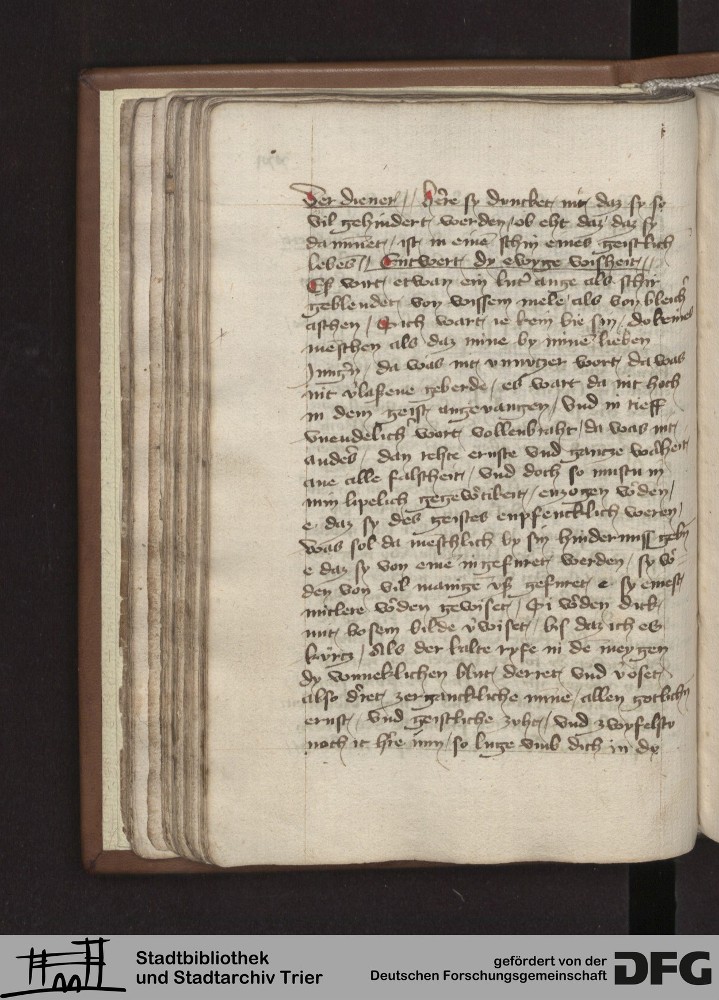 Der diener // here sy duncket mir daz sy so
vil gehindert werden / ob eht daz / daz sy
da minnet / ist in eine schin eines geistlich
lebes // Entwert dy ewyge wisheit //
Es wirt etwan ein luter auge als schir
geblendet von wissem mele / als von bleich
aschen / Sich wart ie kein bie sin / do keines
meschen als daz mine by mine lieben
da was nit unnutzer wort / da was
nit v'lassene geberde / es wart da nit hoch
in dem geist angevangen / Und in tieff
vnendelich wort vollenbraht / da was nit
anders / dan rehte ernste und gantze walheit
ane alle falscheit / Und doch so mustu in
min liplich gegewürtikeit / enzogen w'den /
e daz sy des geistes enpfencklich weren /
Was sol da meschlich by sin hindernuss gebn
e daz sy von eine in gefuret werden / sy w'-
den von vil manige uss gefuret / e sy einest
mitlere w'den gewiset / Si w'den dick
mit bosem bilde v'wiset / bis daz ich es
kürtz / Als der kalte ryfe in de meygen
dy wuneklichen blut derret und v'öset
also d'ret zerganckliche mine / allen gotlichn
ernst / Und geistliche zuht / Und zwyfelstu
noch it hie inn / so luge umb dich in dy
Stadtbibliothek
und Stadtarchiv Trier
gefördert von der
Deutschen Forschungsgemeinschaft
DFG